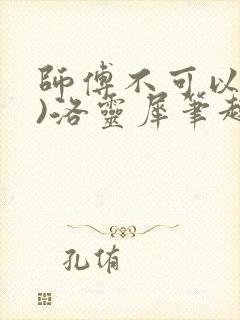 師傅不可以
)-洛靈犀筆
孔侑